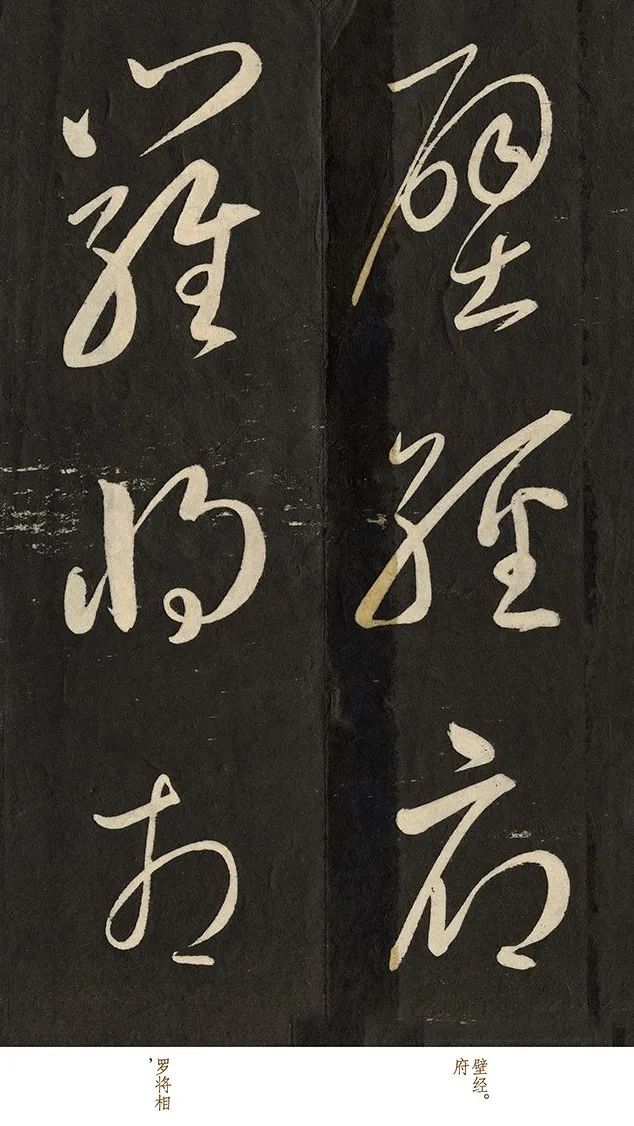 壁經府
羅將相
壁经。
府
罗将相
，